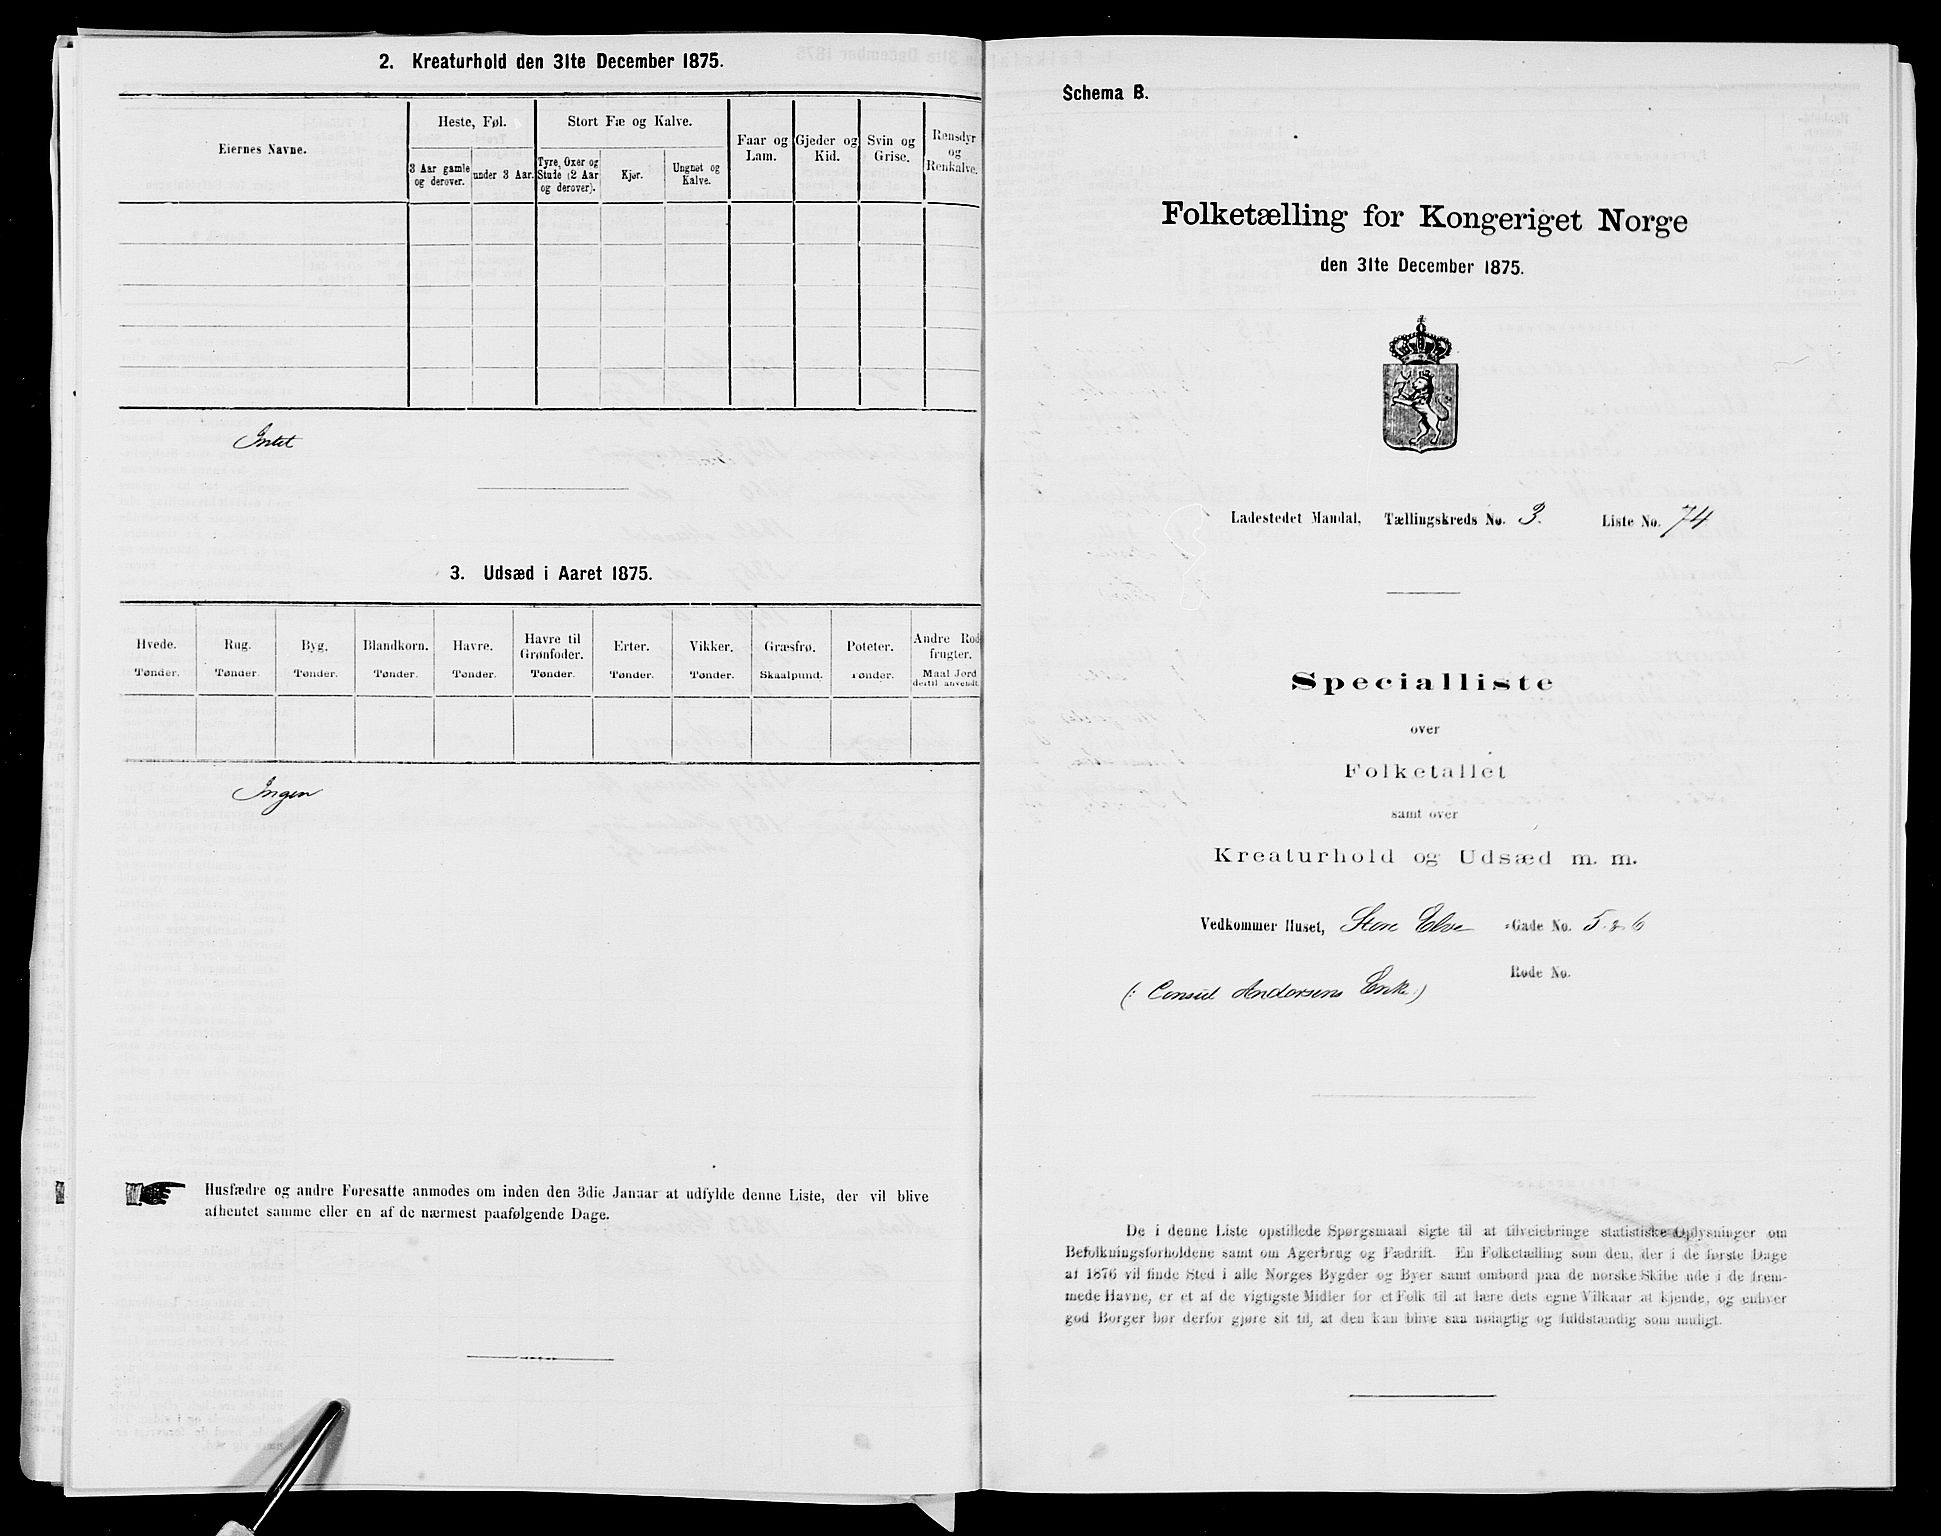 2. Kreaturhold den 31te December 1875.
Eiernes Navne.
Heste, Føl.
3 Aar gamle og derover.
under 3 Aar.
Stort Fæ og Kalve.
Tyre, Oxer og Stude (2 Aar og derover).
Kjør.
Ungnøt og Kalve.
Faar og Lam.
Gjeder og Kid.
Svin og Grise.
Rensdyr og Renkalve.
Intet
3. Udsæd i Aaret 1875.
Hvede. Rug. Byg. Blandkorn. Havre. Havre til Grønfoder. Erter. Vikker. Græsfrø. Poteter. Andre Rodfrugter.
Tønder. Tønder. Tønder. Tønder. Tønder. Tønder. Tønder. Tønder. Skaalpund. Tønder. Maal Jord dertil anvendt.
Ingen
Husfædre og andre Foresatte anmodes om inden den 3die Januar at udfylde denne Liste, der vil blive
afhentet samme eller en af de nærmest paafølgende Dage.
Schema B.
Folketælling for Kongeriget Norge
den 31te December 1875.
Ladestedet Mandal, Tællingskreds No. 3. Liste No. 74
Specialliste
over
Folketallet
samt over
Kreaturhold og Udsæd m. m.
Vedkommer Huset, Store Elve -Gade No. 5 & 6
Rode No.
(: Consul Andersens Enke :)
De i denne Liste opstillede Spørgsmaal sigte til at tilveiebringe statistiske Oplysninger om
Befolkningsforholdene samt om Agerbrug og Fædrift. En Folketælling som den, der i de første Dage
af 1876 vil finde Sted i alle Norges Bygder og Byer samt ombord paa de norske Skibe ude i de frem-
mede Havne, er et af de vigtigste Midler for et Folk til at lære dets egne Vilkaar at kjende, og enhver
god Borger bør derfor gjøre sit til, at den kan blive saa nøiagtig og fuldstændig som muligt.